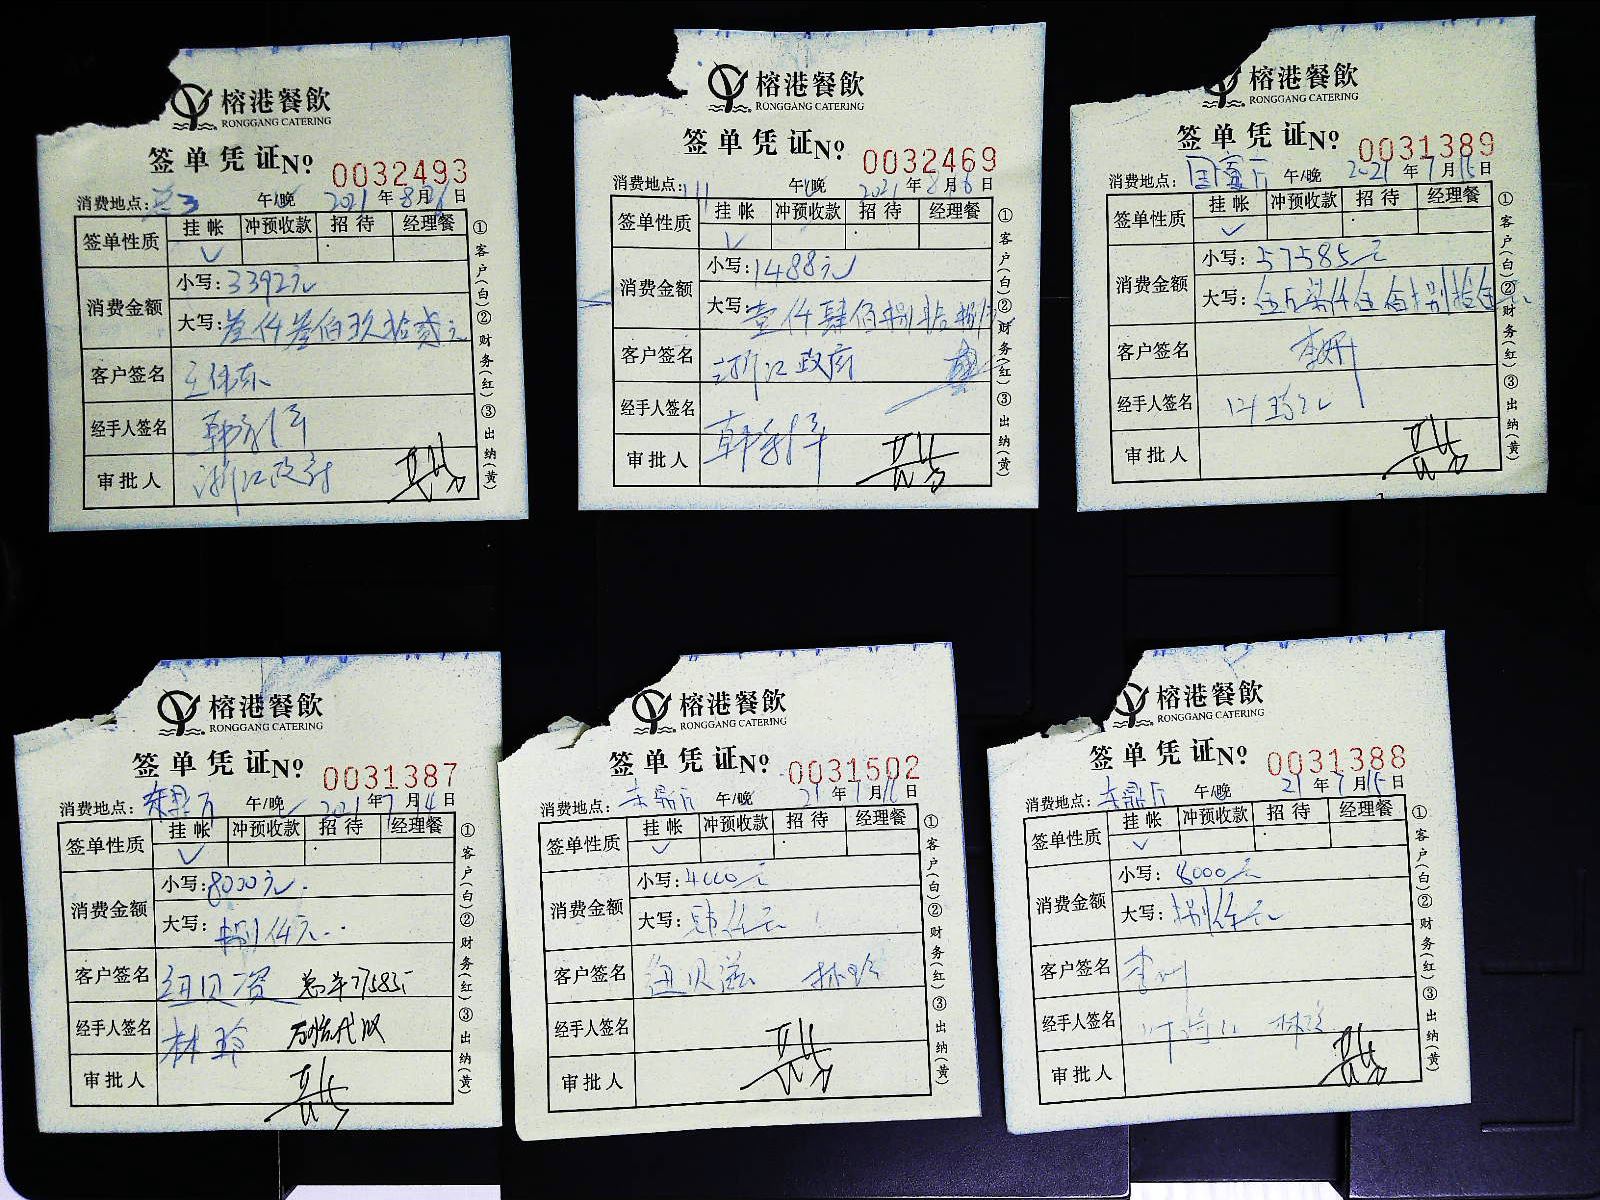 榕港餐飲
RONGGANG CATERING
签单凭证No 0032493
消费地点: 午/晚 2021年8月6日
签单性质 挂帐 冲预收款 招待 经理餐
消费金额 小写:3392元
大写:叁仟叁佰玖拾贰元
客户签名 王伟东
经手人签名
审批人 浙江政府
①客户(白)②财务(红)③出纳(黄)
榕港餐飲
RONGGANG CATERING
签单凭证No 0032469
消费地点:111 午/晚 2021年8月6日
签单性质 挂帐 冲预收款 招待 经理餐
消费金额 小写:1488元
大写:壹仟肆佰捌拾捌
客户签名 浙江政府
经手人签名
审批人
①客户(白)②财务(红)③出纳(黄)
榕港餐飲
RONGGANG CATERING
签单凭证No 0031389
消费地点:国宴厅 午/晚 2021年7月15日
签单性质 挂帐 冲预收款 招待 经理餐
消费金额 小写:57585元
大写:伍万柒仟伍佰捌拾伍元
客户签名 李妍
经手人签名
审批人
①客户(白)②财务(红)③出纳(黄)
榕港餐飲
RONGGANG CATERING
签单凭证No 0031387
消费地点: 午/晚 2021年7月14日
签单性质 挂帐 冲预收款 招待 经理餐
消费金额 小写:8000元
大写:捌仟元
客户签名 纽贝滋
经手人签名 林玲
审批人
①客户(白)②财务(红)③出纳(黄)
榕港餐飲
RONGGANG CATERING
签单凭证No 0031502
消费地点: 午/晚 21年7月16日
签单性质 挂帐 冲预收款 招待 经理餐
消费金额 小写:4000元
大写:肆仟元
客户签名 纽贝滋 林玲
经手人签名
审批人
①客户(白)②财务(红)③出纳(黄)
榕港餐飲
RONGGANG CATERING
签单凭证No 0031388
消费地点: 午/晚 21年7月15日
签单性质 挂帐 冲预收款 招待 经理餐
消费金额 小写:8000元
大写:捌仟元
客户签名
经手人签名 林玲
审批人
①客户(白)②财务(红)③出纳(黄)